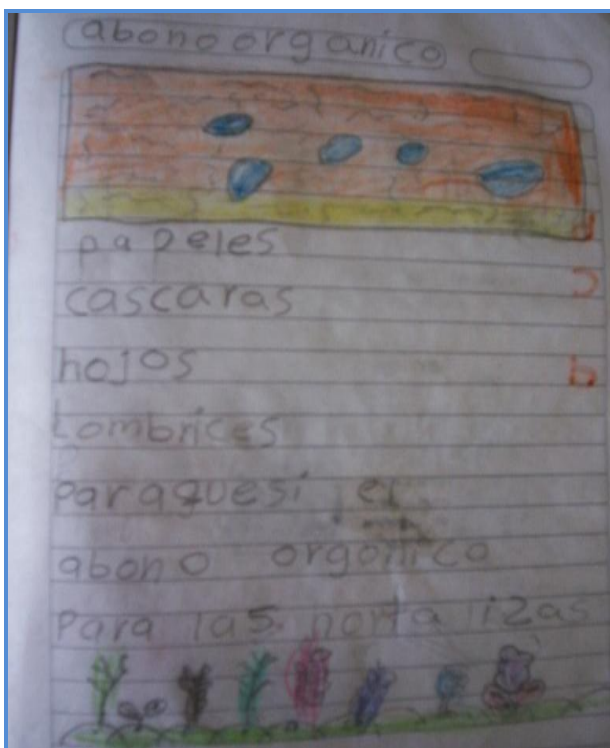 abono organico
papeles
cascaras
hojos
Lombrices
paraquesi el
abono orgonico
Para las hortalizas